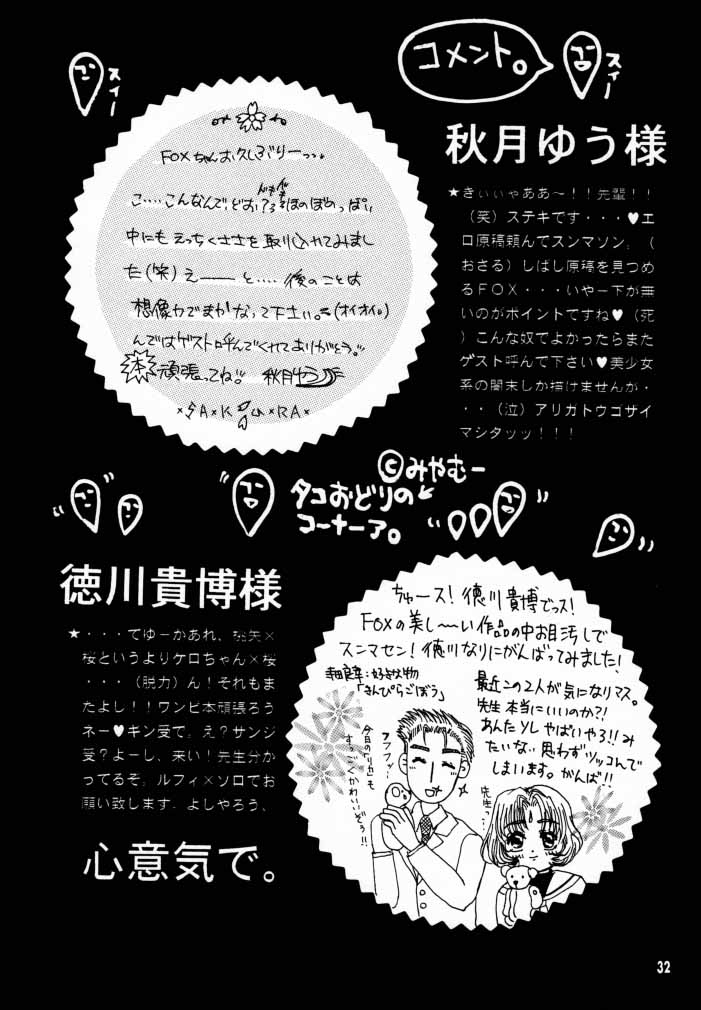 コメント。
スイー
スイー
秋月ゆう様
★きぃぃゃああ~!!先輩!!
(笑)ステキです・・・♥エ
ロ原稿頼んでスンマソン。(
おさる)しばし原稿を見つめ
るFOX・・・いやー下が無
いのがポイントですね♥(死
)こんな奴でよかったらまた
ゲスト呼んで下さい♥美少女
系の闇末しか描けませんが・
・・(泣)アリガトウゴザイ
マシタッッ!!!
FOXちゃんお久しぶりーっっ
こ‥‥こんなんでどお?ほのぼのっぽい
中にもえっちくささを取り入れてみまし
た(笑)えーーと‥‥後のことは
想像力でまかなって下さい。(オイオイ。)
んではゲストに呼んでくれてありがとう。
本頑張ってね!! 秋月ゆう
×SA×K×U×RA×
©みやむー
タコおどりの
コーナーア。
徳川貴博様
★・・・てゆーかあれ、桃矢×
桜というよりケロちゃん×桜
・・・(脱力)ん!それもま
たよし!!ワンピ本頑張ろう
ネー♥キン受で。え?サンジ
受?よーし、来い!先生分か
ってるぞ。ルフィ×ゾロでお
願い致します。よしやろう、
心意気で。
ちゅース!徳川貴博でっス!
FOXの美し〜い作品の中お目汚しで
スンマセン!徳川なりにがんばってみました!
寺田良幸:好きな物
「きんぴらごぼう」
最近この2人が気になりマス。
先生本当にいいのか?!
あんたソレやばいやろ!!み
たいな。思わずツッコんで
しまいます。がんば!!
フフフッ…
今日の「リカ」も
すっごくかわいいぞぅ!!
先生っ…
32